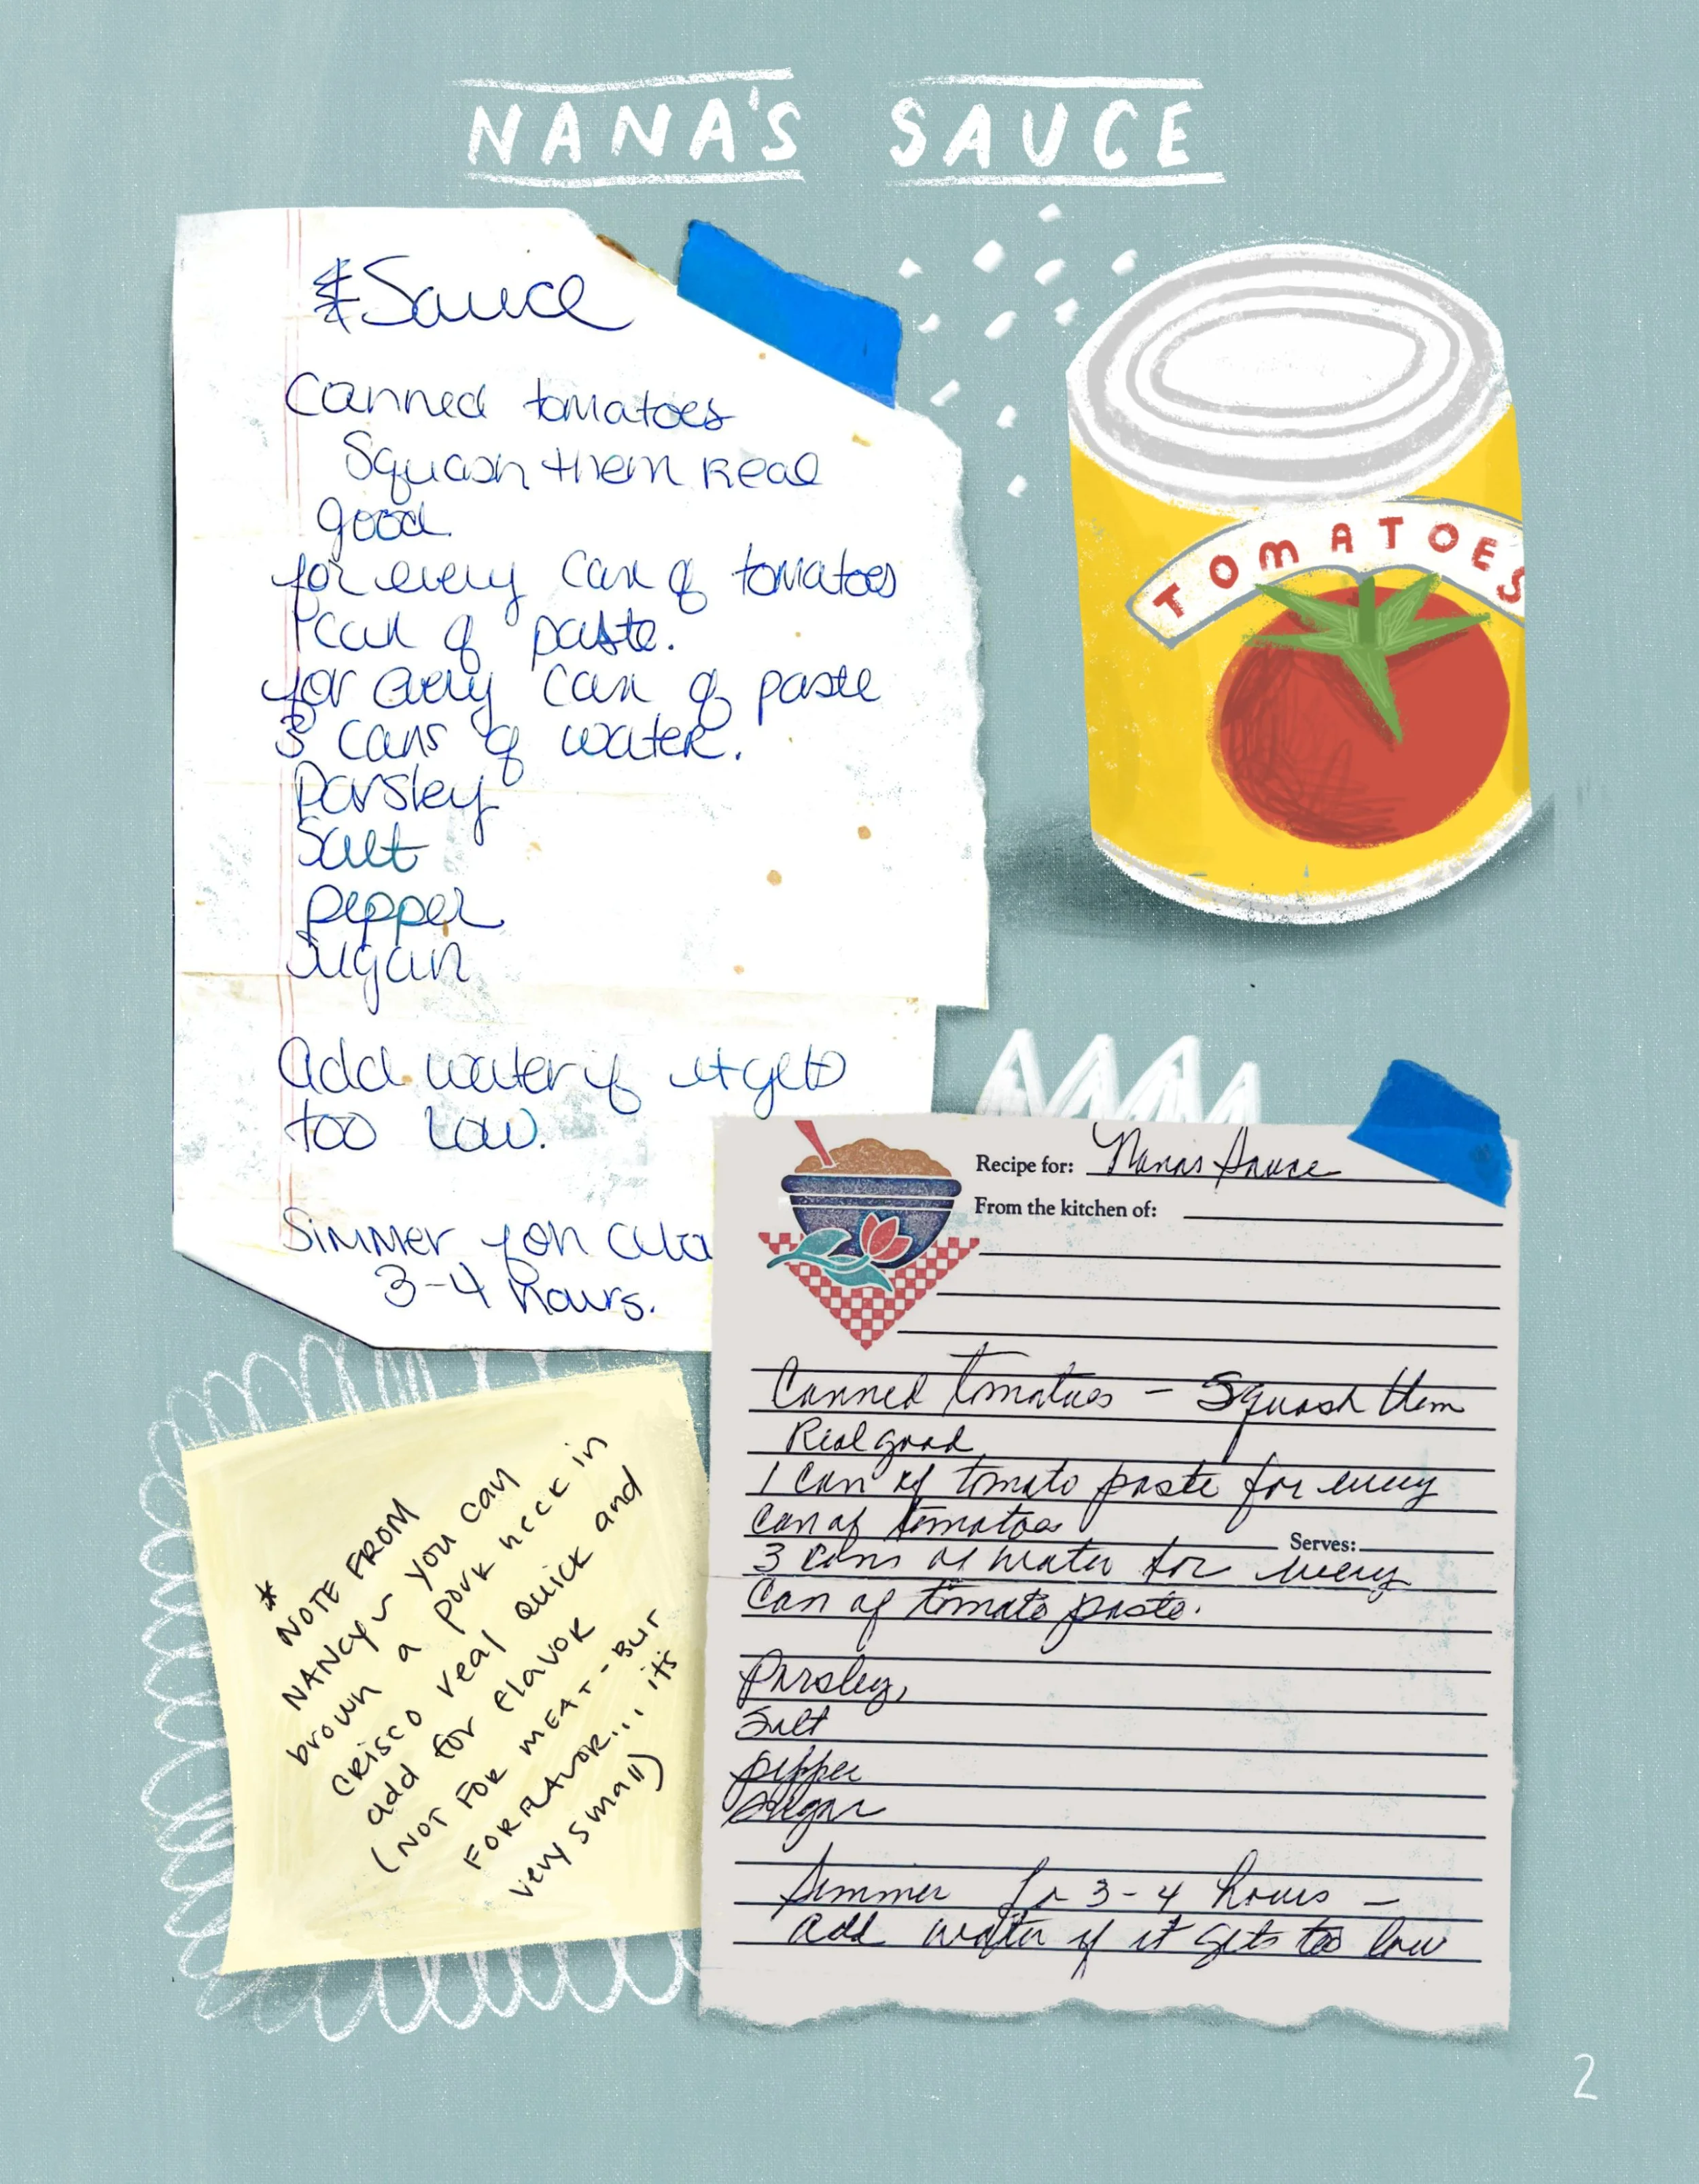 NANA'S SAUCE
Sauce
Canned tomatoes
Squash them Real
good.
for every can of tomatoes
1 can of paste.
for every can of paste
3 cans of water.
Parsley
Salt
pepper
Sugar
Add water if it gets
too low.
Simmer for
3-4 hours.
TOMATOES
Recipe for: Nana's Sauce
From the kitchen of:
Canned tomatoes - Squash them
Real good
1 can of tomato paste for every
can of tomatoes
Serves:
3 cans of water for every
can of tomato paste.
Parsley,
Salt
pepper
Sugar
Simmer for 3-4 hours -
add water if it gets too low
*
NOTE FROM
NANCY~ you can
brown a pork neck in
crisco real quick and
add for flavor
(NOT FOR MEAT - BUT
FOR FLAVOR... its
very small)
2